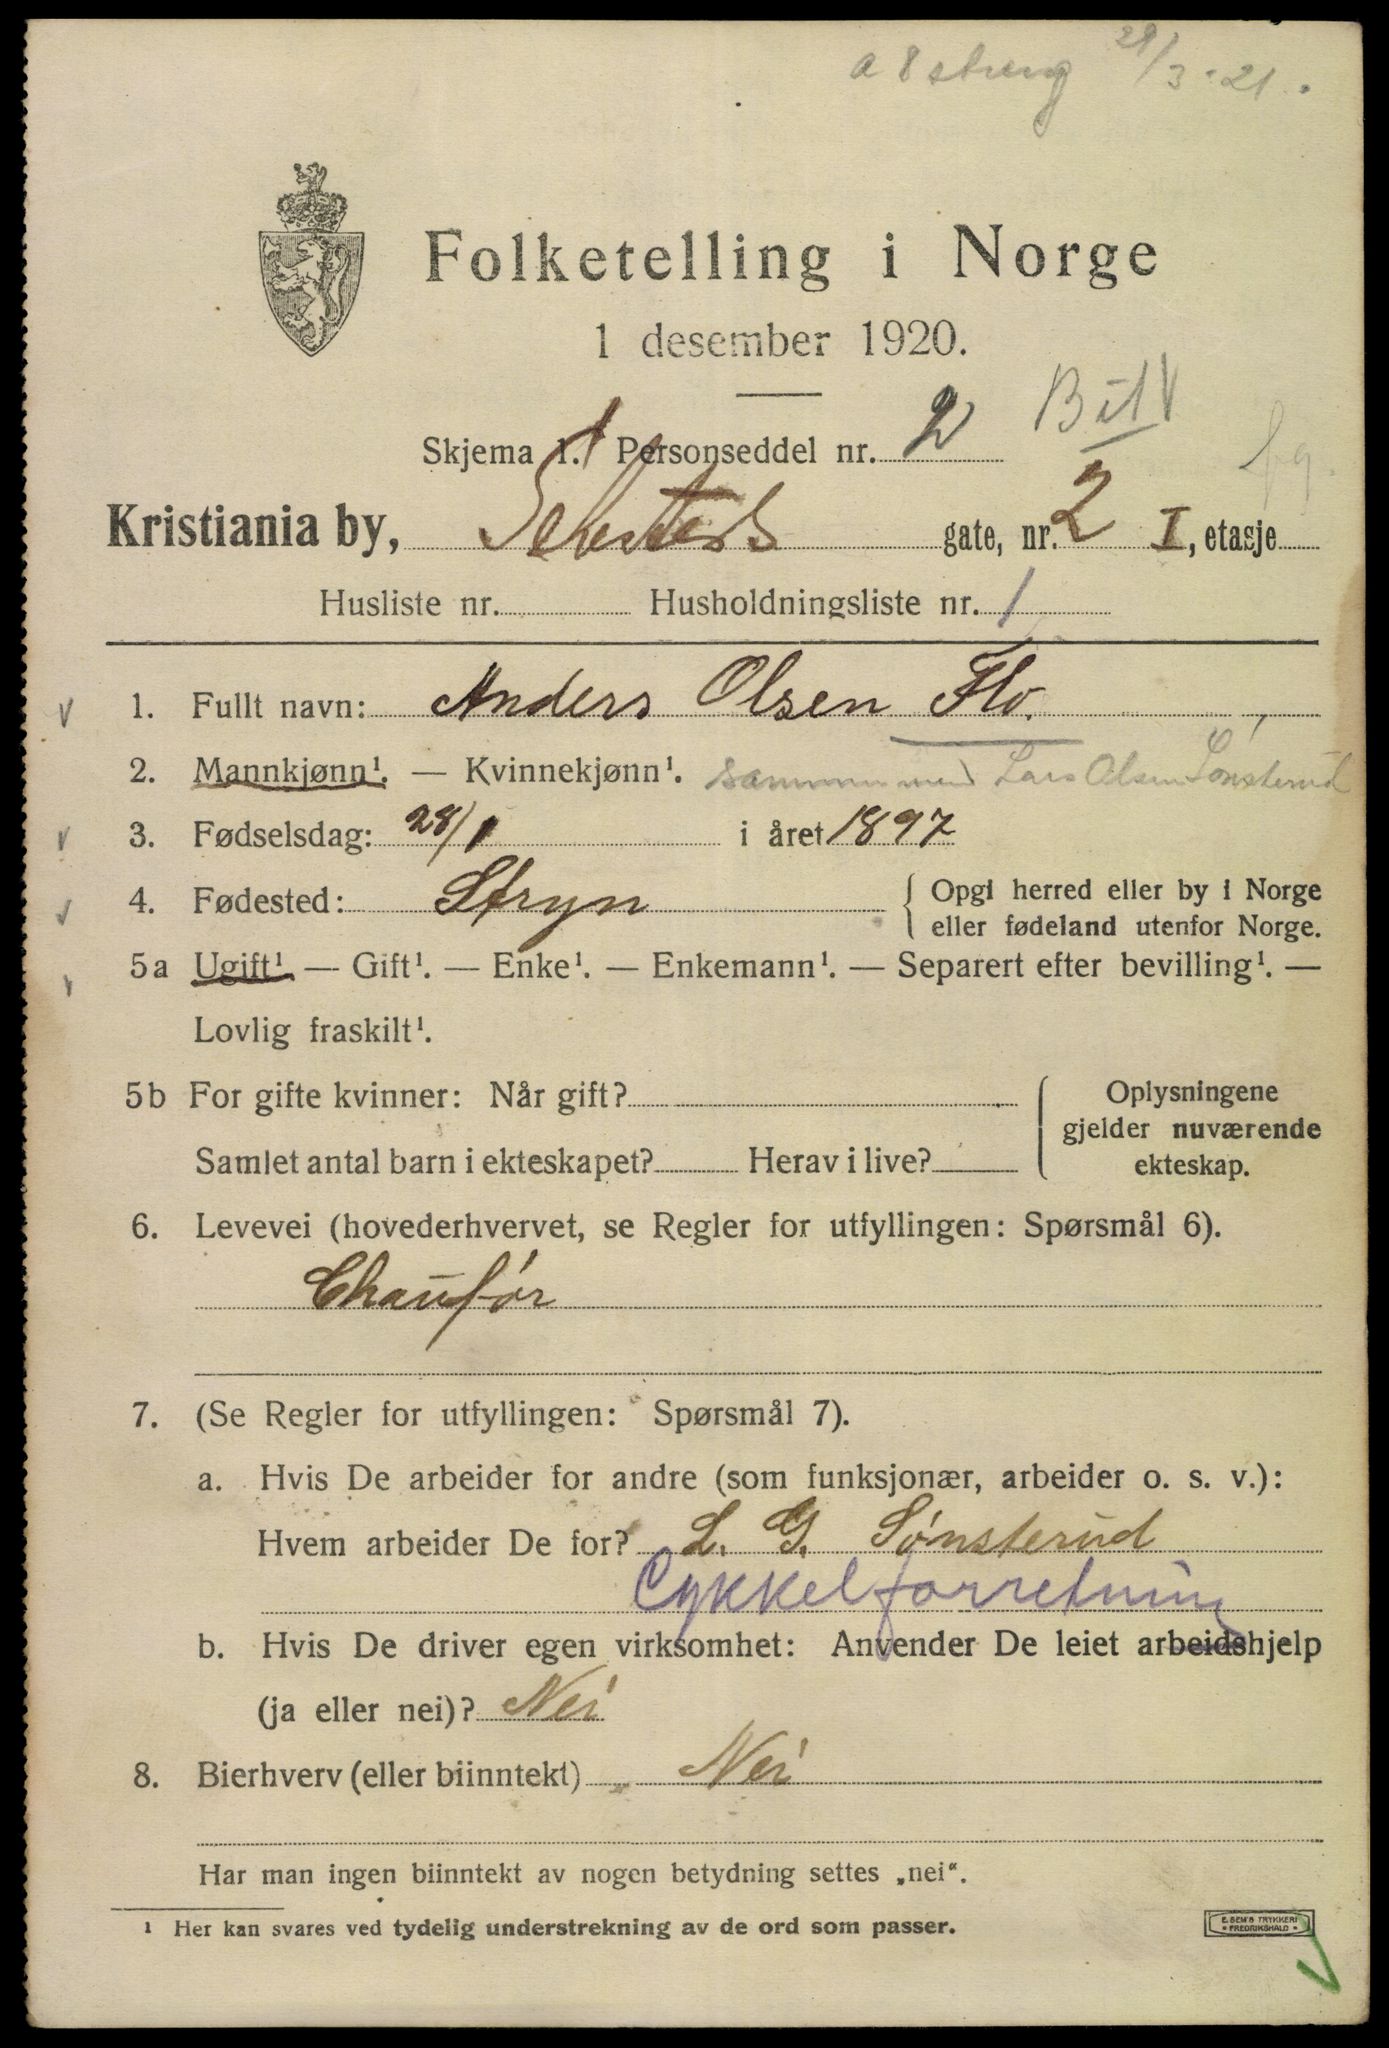 29/3-21.
Folketelling i Norge
1 desember 1920.
Skjema 1. Personseddel nr. 2
Kristiania by, gate, nr. 2 I, etasje
Husliste nr. Husholdningsliste nr. 1
1. Fullt navn: Anders Olsen Flo.
2. Mannkjønn¹. — Kvinnekjønn¹. sammen med Lars Olsen Sønsterud
3. Fødselsdag: 28/1 i året 1897
4. Fødested: Stryn { Opgi herred eller by i Norge
eller fødeland utenfor Norge.
5a Ugift¹. — Gift¹. — Enke¹. — Enkemann¹. — Separert efter bevilling¹. —
Lovlig fraskilt¹.
5b For gifte kvinner: Når gift? { Oplysningene
gjelder nuværende
Samlet antal barn i ekteskapet? Herav i live? ekteskap.
6. Levevei (hovederhvervet, se Regler for utfyllingen: Spørsmål 6).
Chauffør
7. (Se Regler for utfyllingen: Spørsmål 7).
a. Hvis De arbeider for andre (som funksjonær, arbeider o. s. v.):
Hvem arbeider De for? L. G. Sønsterud
Cykkelforretning
b. Hvis De driver egen virksomhet: Anvender De leiet arbeidshjelp
(ja eller nei)? Nei
8. Bierhverv (eller biinntekt) Nei
Har man ingen biinntekt av nogen betydning settes „nei“.
¹ Her kan svares ved tydelig understrekning av de ord som passer.
E. SEM'S TRYKKERI
• FREDRIKSHALD •